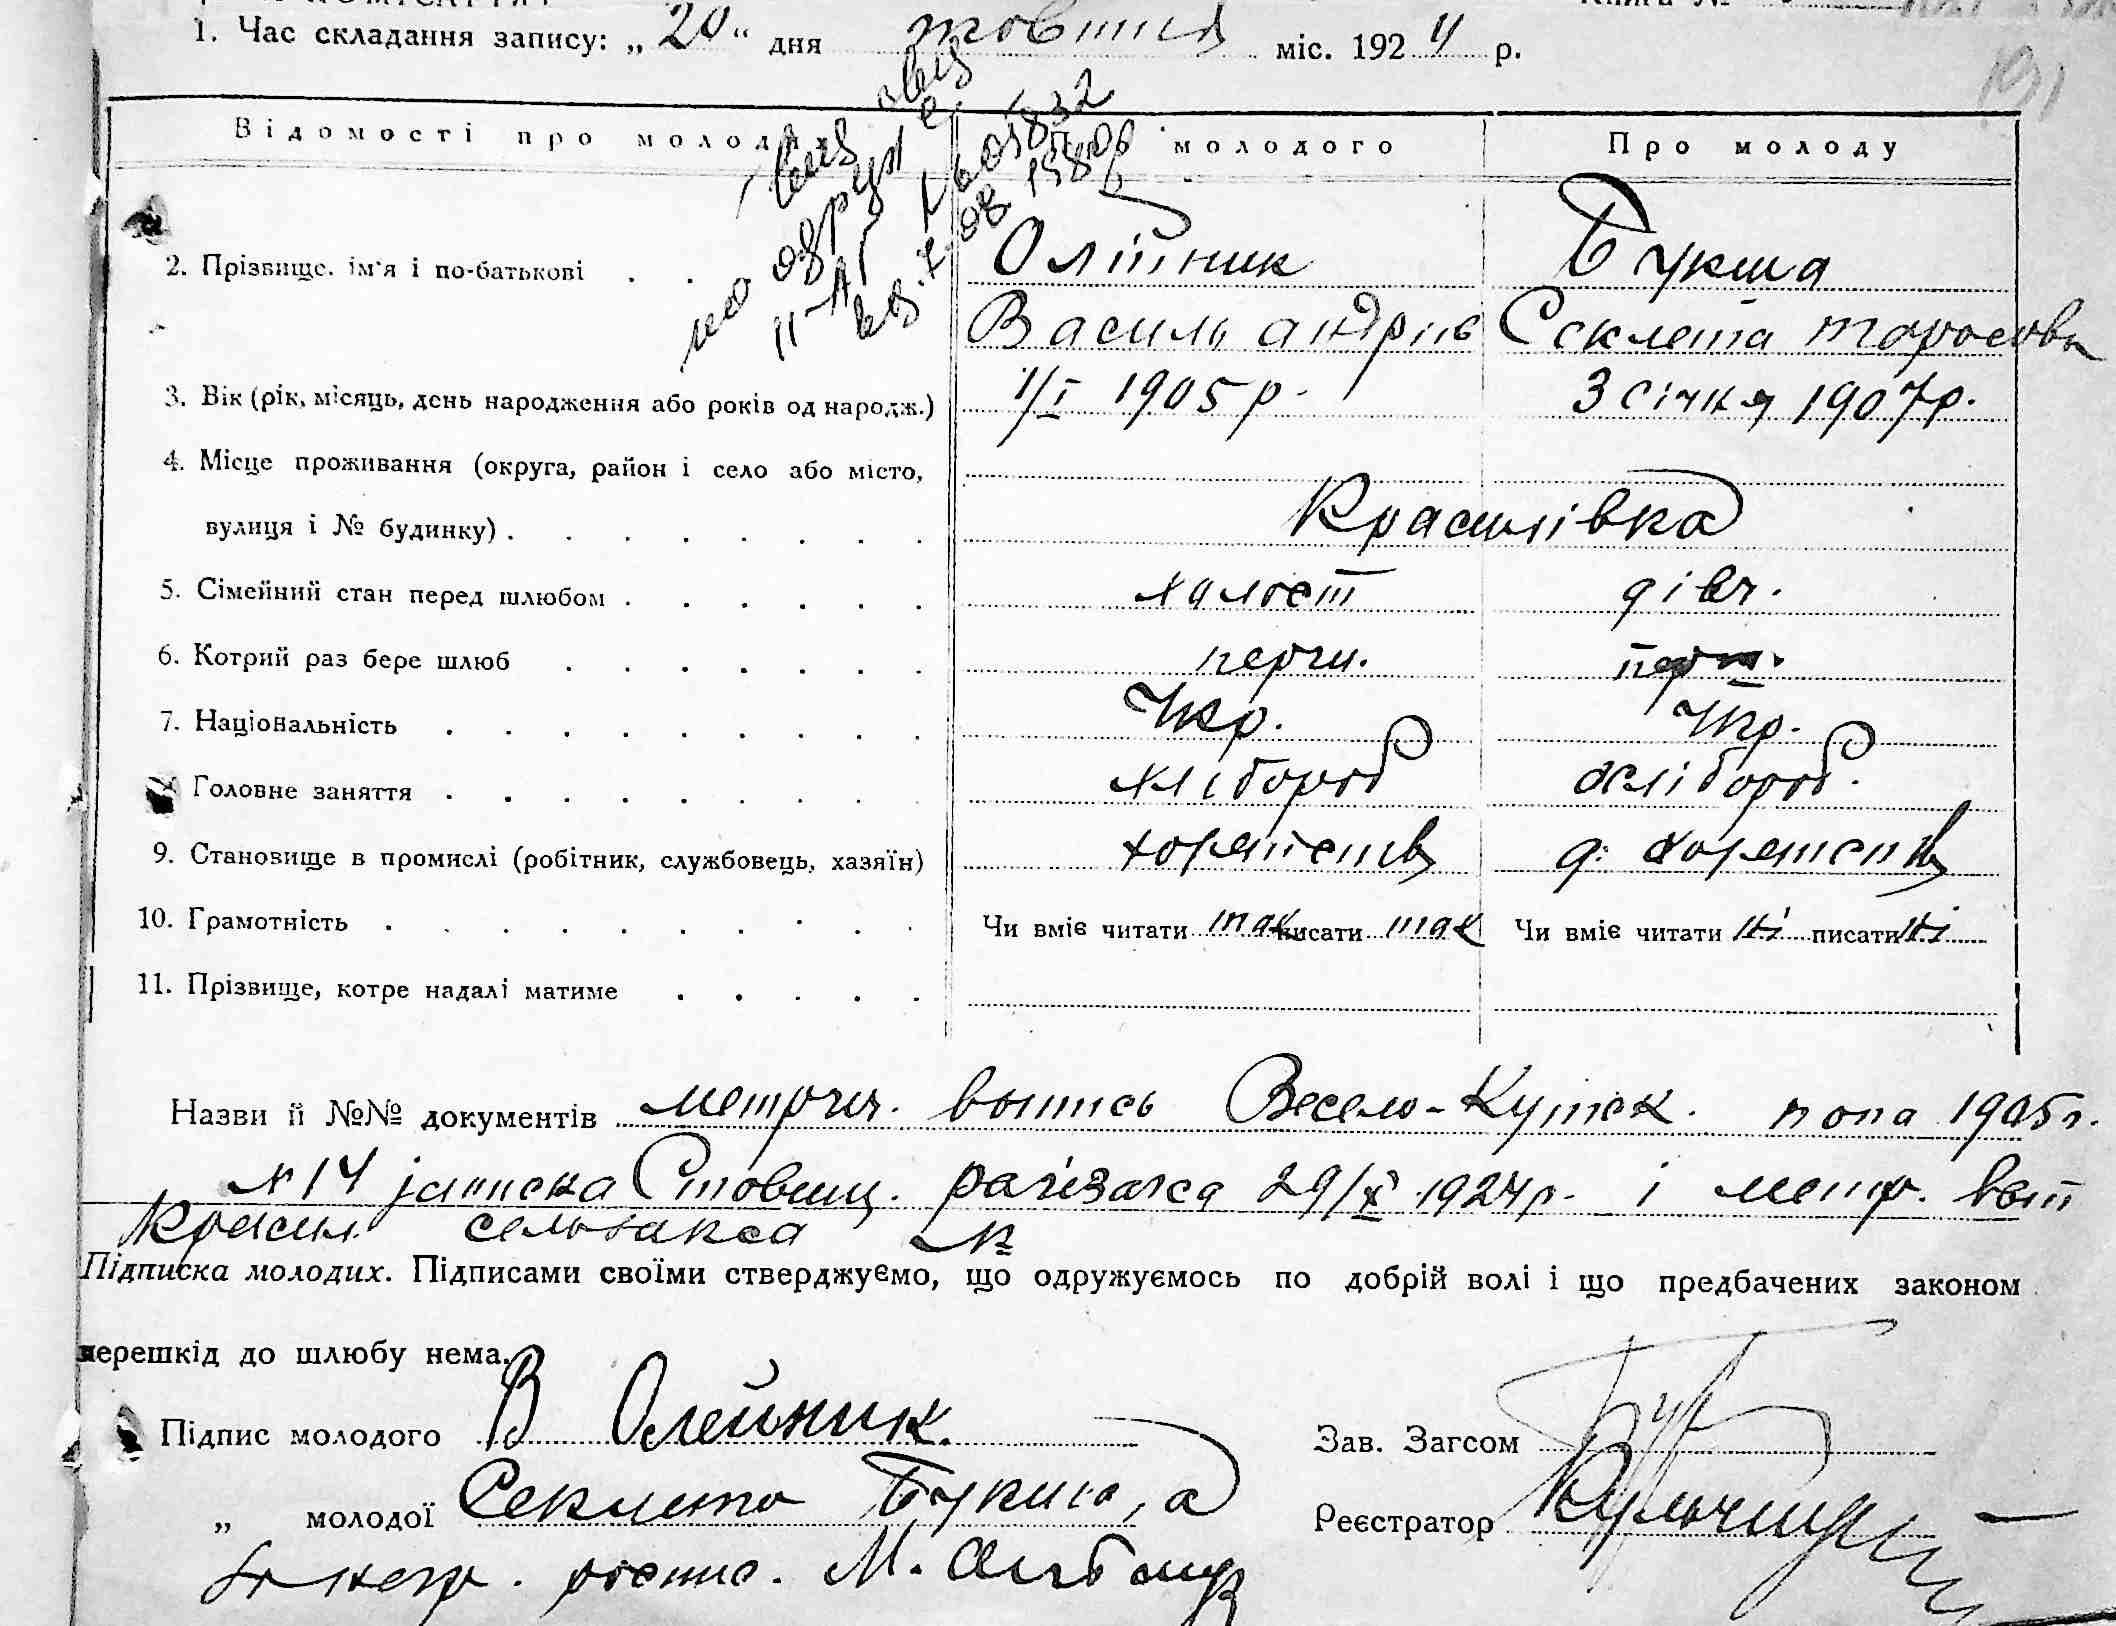 1. Час складання запису: „20“ дня жовтня міс. 1924 р.
191
Відомості про молодих
молодого
Про молоду
2. Прізвище, ім'я і по-батькові
Олійник
Букша
Василь Андріїв
Секлета Тарасовн
3. Вік (рік, місяць, день народження або років од народж.)
1/I 1905 р.
3 січня 1907р.
4. Місце проживання (округа, район і село або місто,
вулиця і № будинку)
Красилівка
5. Сімейний стан перед шлюбом
халост
дівч.
6. Котрий раз бере шлюб
перш.
перш.
7. Національність
Укр.
Укр.
Головне заняття
хлібороб
хлібороб.
9. Становище в промислі (робітник, службовець, хазяїн)
10. Грамотність
Чи вміє читати так писати так
Чи вміє читати ні писати ні
11. Прізвище, котре надалі матиме
Назви й №№ документів метрич. выпись Весело-Кутск. попа 1905 г.
N 14 записка Ставищ. райзагса 29/X 1924р. і метр. вып
Красил.
Підписка молодих. Підписами своїми стверджуємо, що одружуємось по добрій волі і що предбачених законом
перешкід до шлюбу нема.
Підпис молодого В Олейник.
Зав. Загсом
„ молодої Секлета Букша, а
Реєстратор
негр. роспис. М.